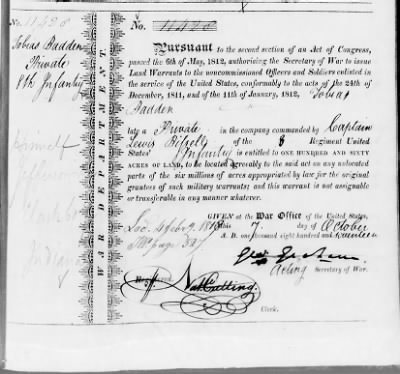 No. 11420
Tobias Dadden
Private
8th Infantry
WAR DEPARTMENT.
No. 11420
Pursuant to the second section of an Act of Congress,
passed the 6th of May, 1812, authorising the Secretary of War to issue
Land Warrants to the noncommissioned Officers and Soldiers enlisted
in the service of the United States, conformably to the acts of the 24th of
December, 1811, and of the 11th of January, 1812, Tobias
Dadden
late a Private in the company commanded by Captain
Lewis of the 8 Regiment United
States' Infantry is entitled to ONE HUNDRED AND SIXTY
ACRES OF LAND, to be located agreeably to the said act on any unlocated
parts of the six millions of acres appropriated by law for the original
grantees of such military warrants; and this warrant is not assignable
or transferable in any manner whatever.
GIVEN at the War Office of the United States,
this 7. day of October
A. D. one thousand eight hundred and
Acting Secretary of War.
Nat. Cutting.
Clerk.